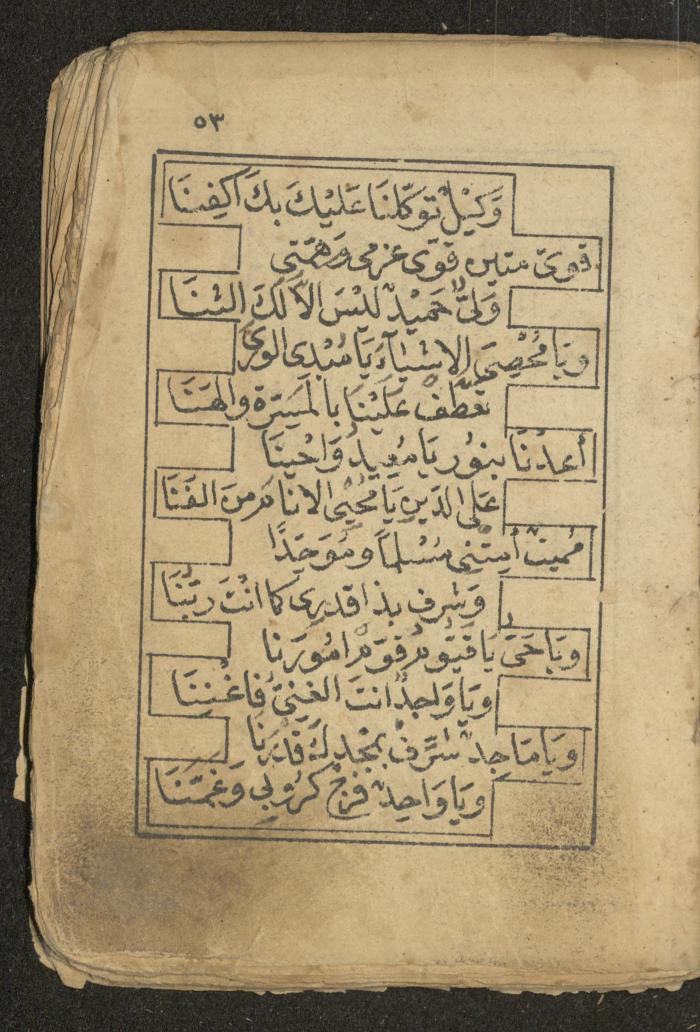 ٥٣
وَكِيلٌ تَوَكَّلْنَا عَلَيْكَ بِكَ اكْفِنَا
قوىّ متين قوّى عزمى وَهمّتى
وَلىٌّ حَمِيْدٌ لَيْسَ الاّ لَكَ الثنَا
وَيَا مُحْصِىَ الاشْيَاءِ يَا مُبْدِى الورى
تعطّف عَلَيْنا بالمَسَرّة والهَنَا
أعدْنَا بنوُر يَا مُعِيدُ وَاحْينَا
عَلى الدّين يَا مُحْيِى الانام مِنَ الفَنَا
مُميتٌ أمِتْنِى مُسْلِماً ومُوَحِّدًا
وَشرف بذا قدرى كما انْتَ ربّنَا
وَيَا حَىُّ يَا قَيّومُ قوّم امُورَنا
وَيَا وَاجدٌ انتَ الغنِىّ فاغْنِنَا
وَيَا مَاجِدٌ شرِّفْ بمَجْدِكَ قدْرَنا
وَيَا وَاحِدٌ فرّجْ كرُوبِي وَغمّنَا